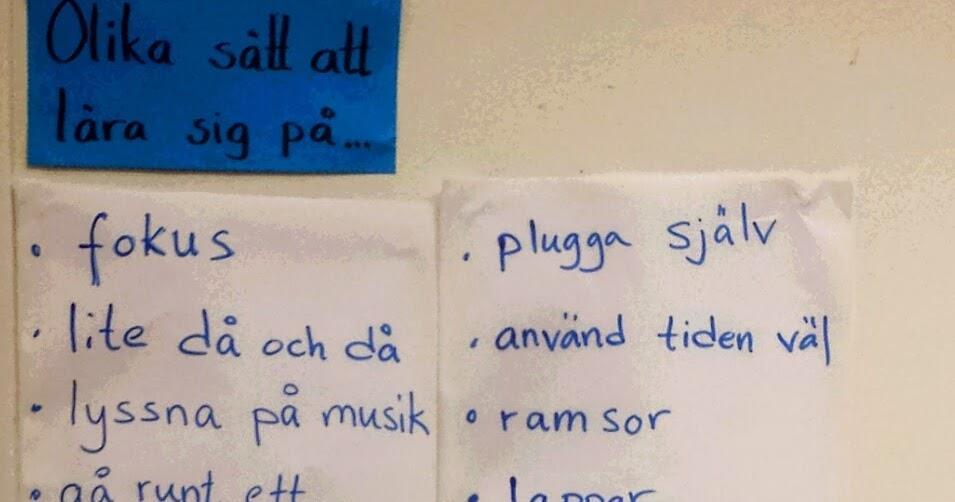 Olika sätt att
lära sig på...
• fokus
• lite då och då
• lyssna på musik
• gå runt ett
• plugga själv
• använd tiden väl
• ramsor
• lappar